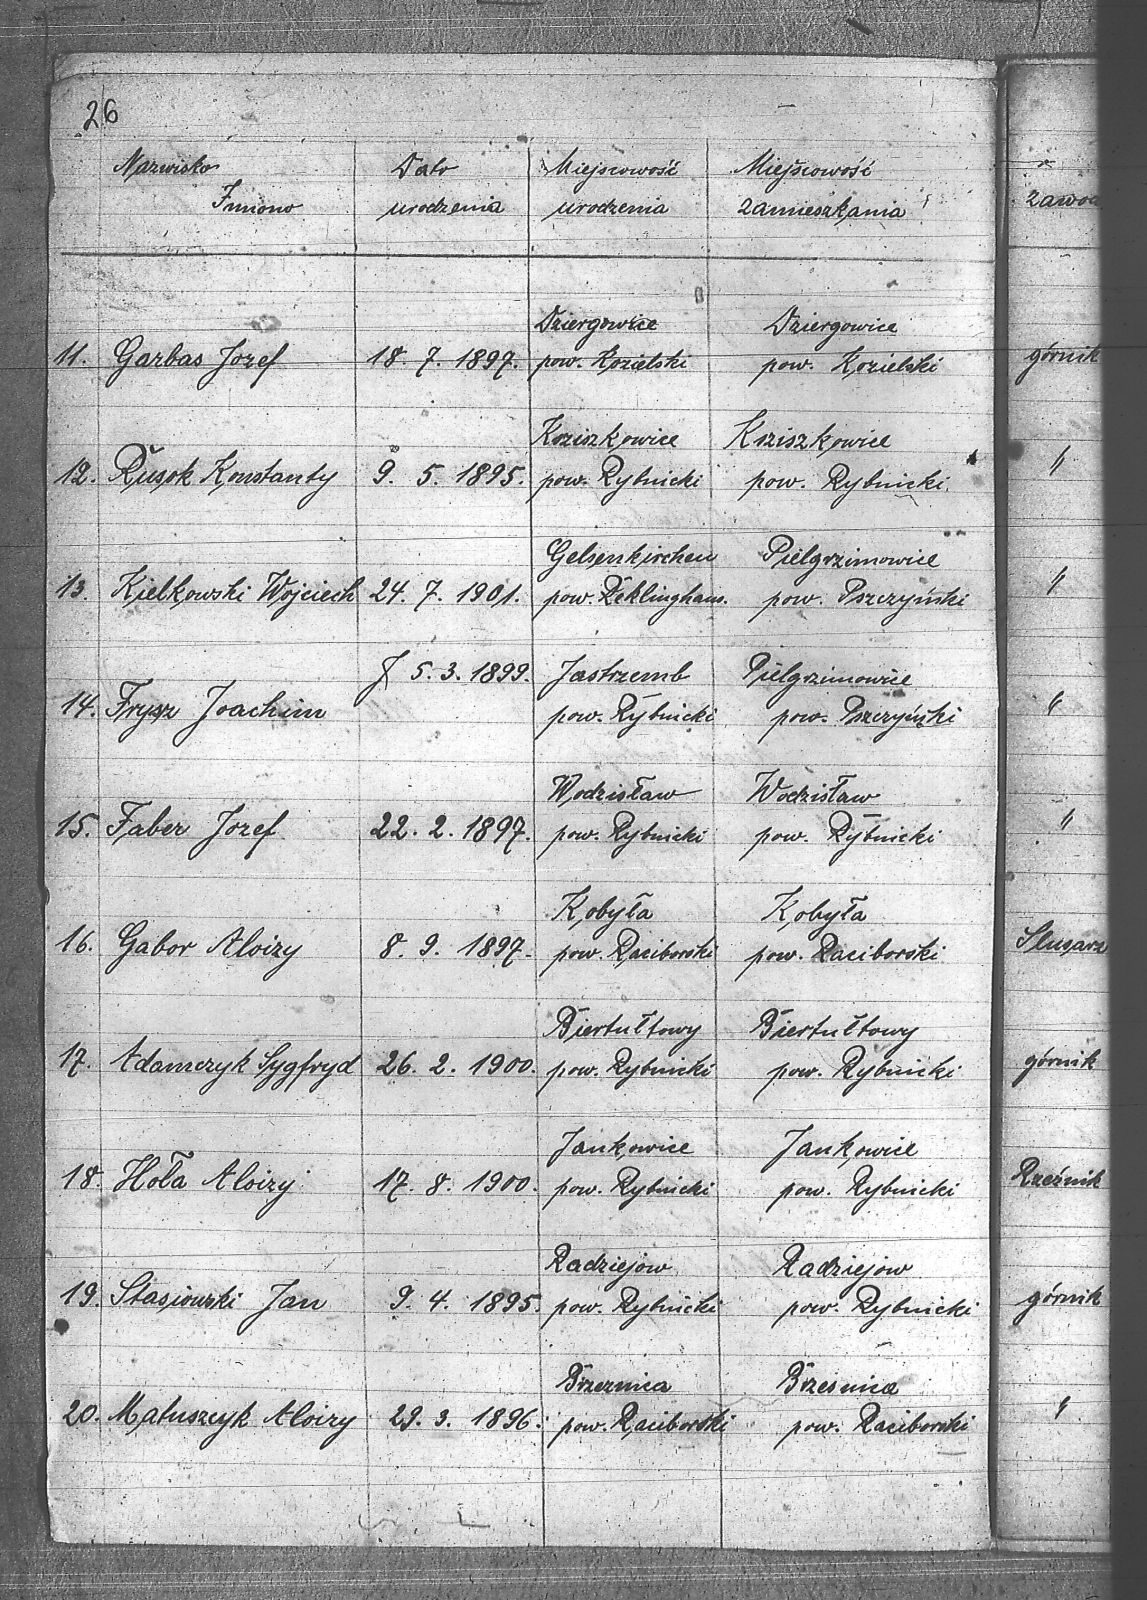 26
Nazwisko Data Miejscowość Miejscowość
Imiono urodzenia urodzenia zamieszkania zawod
Dziergowice Dziergowice
11. Garbas Jozef 18. 7. 1897. pow. Kozielski pow. Kozielski górnik
Krziszkowice Krziszkowice
12. Rusok Konstanty 9. 5. 1895. pow. Rybnicki pow. Rybnicki "
Gelsenkirchen Pielgrzimowice
13. Kielkowski Wojciech 24. 7. 1901. pow. Reklinghaus. pow. Pszczyński "
5. 3. 1899. Jastrzemb Pielgrzimowice
14. Frysz Joachim pow. Rybnicki pow. Pszczyński "
Wodzisław Wodzisław
15. Faber Jozef 22. 2. 1897. pow. Rybnicki pow. Rybnicki "
Kobyła Kobyła
16. Gabor Aloizy 8. 9. 1897. pow. Raciborski pow. Raciborski Slusarz
Biertułtowy Biertułtowy
17. Adamczyk Sygfryd 26. 2. 1900. pow. Rybnicki pow. Rybnicki górnik
Jankowice Jankowice
18. Hoła Aloizy 17. 8. 1900. pow. Rybnicki pow. Rybnicki Rzeźnik
Radziejow Radziejow
19. Stasiowski Jan 9. 4. 1895. pow. Rybnicki pow. Rybnicki górnik
Brzeznica Brzesnica
20. Matuszcyk Aloizy 29. 3. 1896. pow. Raciborski pow. Raciborski "